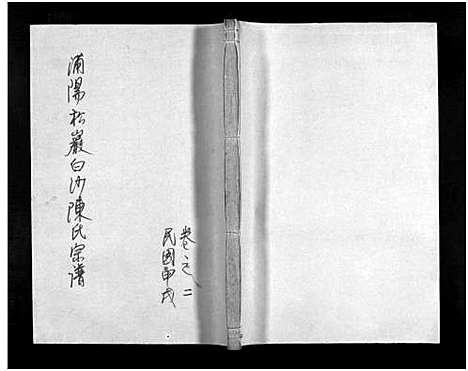 浦陽松巖白沙陳氏宗譜
卷之二
民國甲戌